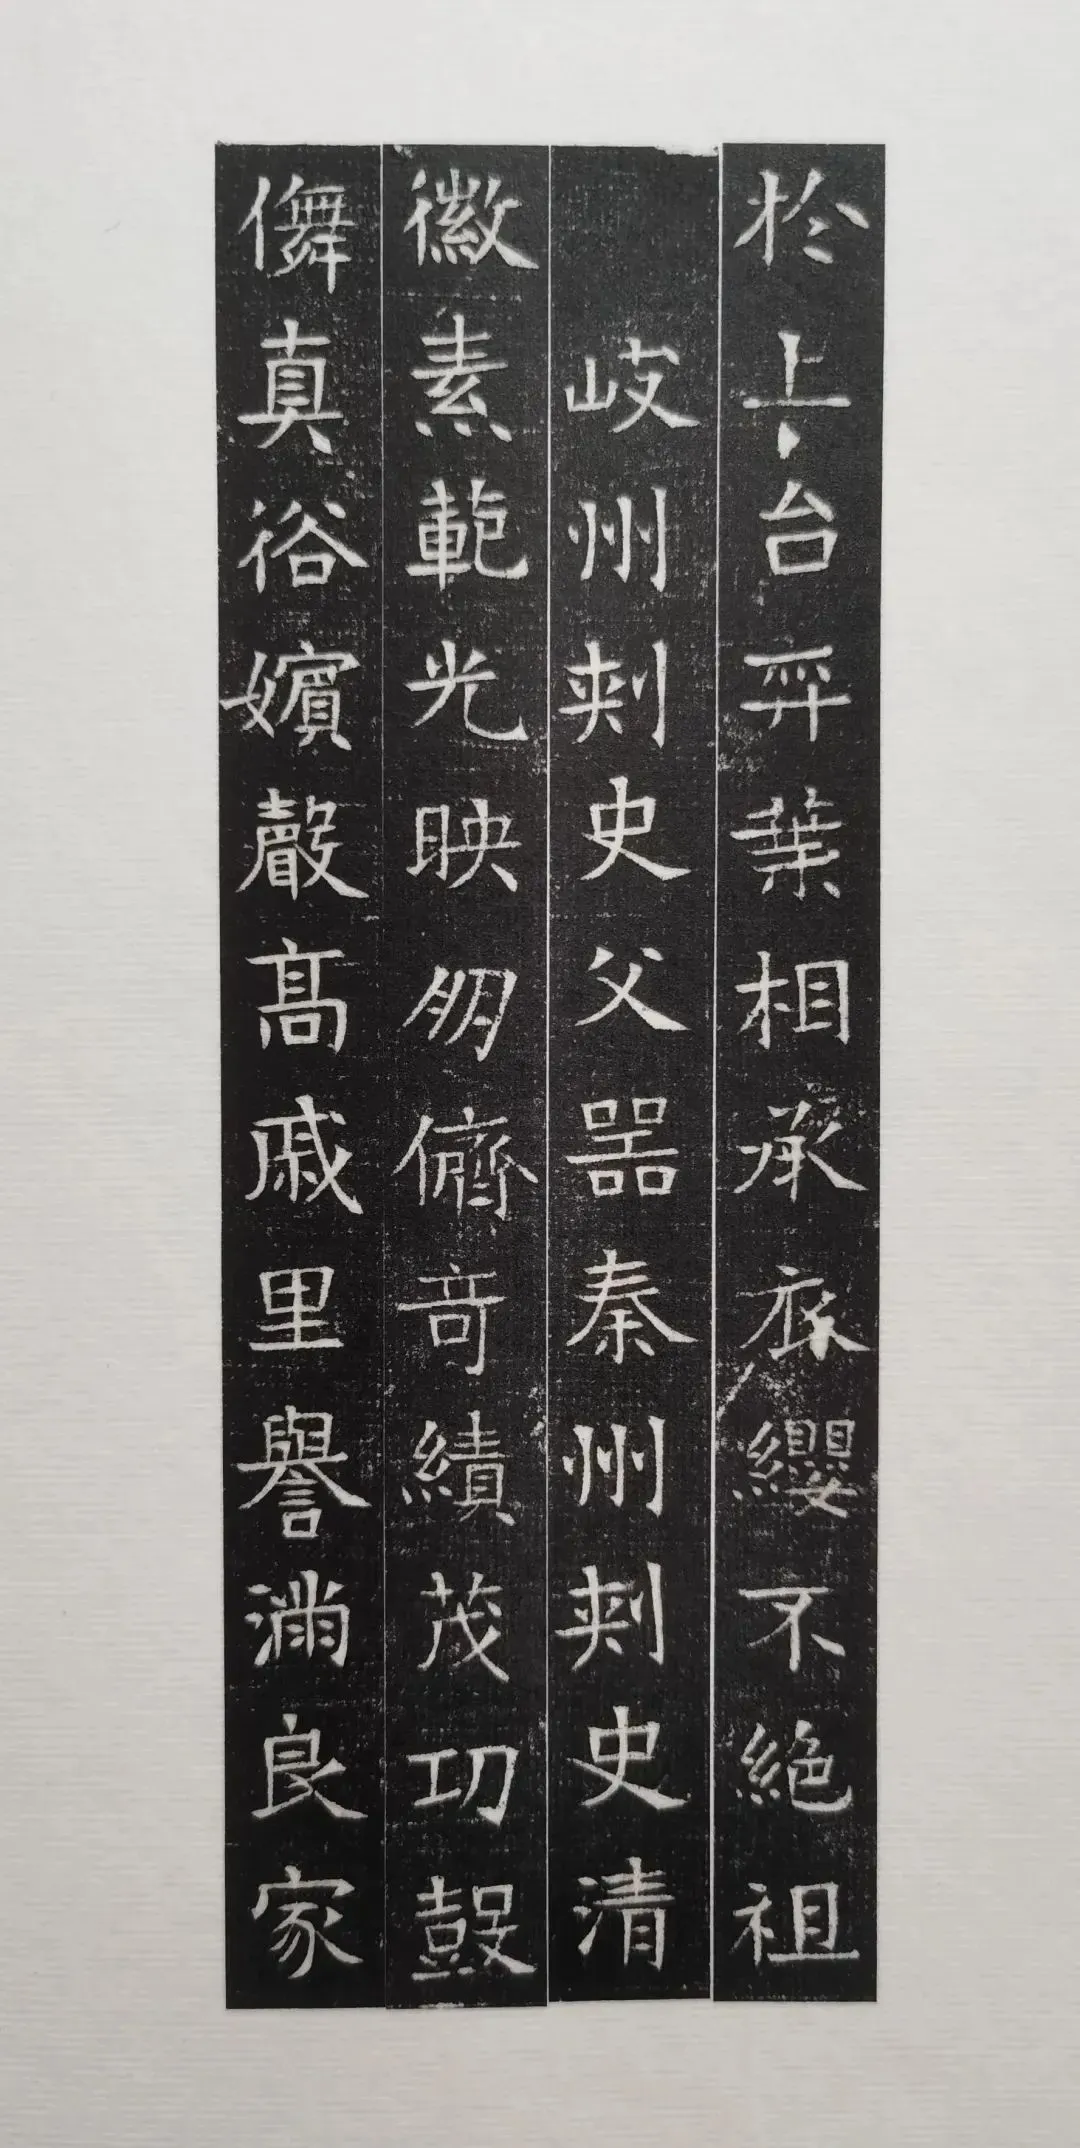 於上台弈葉相承衣纓不絕祖
岐州刾史父噐秦州刾史清
徽素範光映朋儕奇績茂功鼓
儛真俗嬪聲髙戚里譽滿良家